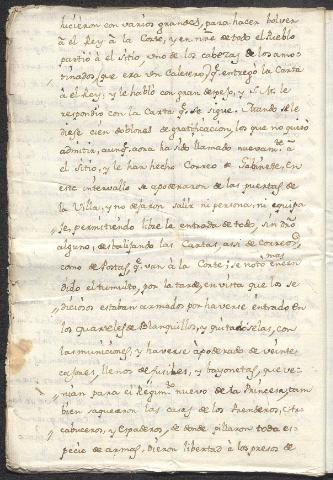 hicieron con varios grandes, para hacer bolver
â el Rey â la Corte, y en nre de todo el Pueblo
partiò â el Sitio uno de los cabezas de los amo
tinados, que era un Calesero, q.e entregò la Carta
â el Rey; y le hablò con gran despejo, y S. M. le
respondiò con la Carta q.e se sigue. Mandosele
diese cien doblones de gratificacion, los que no quiso
admitir, aunq.e aora ha sido llamado nuevam.te â
el Sitio, y le han hecho Correo de Gabinete, en
este intervallo se apoderaron de las puertas de
la Villa, y no dejaron salir ni persona, ni equipa
je, permitiendo libre la entrada de todo, sin dro
alguno, desbalijando las Cartas, asi de Correos,
como de Postas, q.e van â la Corte; se notò mas encen
dido el tumulto, por la tarde, en vista que los se
diciosos estaban armados por haverse entrado en
los quarteles de Blanquillos, y quitadoselas, con
las municiones, y haverse apoderado de veinte
caxones, llenos de fusiles, y bayonetas, que ve
nian para el Regim.to nuevo de la Princesa, tam
bien saquearon las casas de los Prenderos, Ar
cabuceros, y Espaderos, de donde pillaron toda es
pecie de armas. Dieron libertad â los presos de